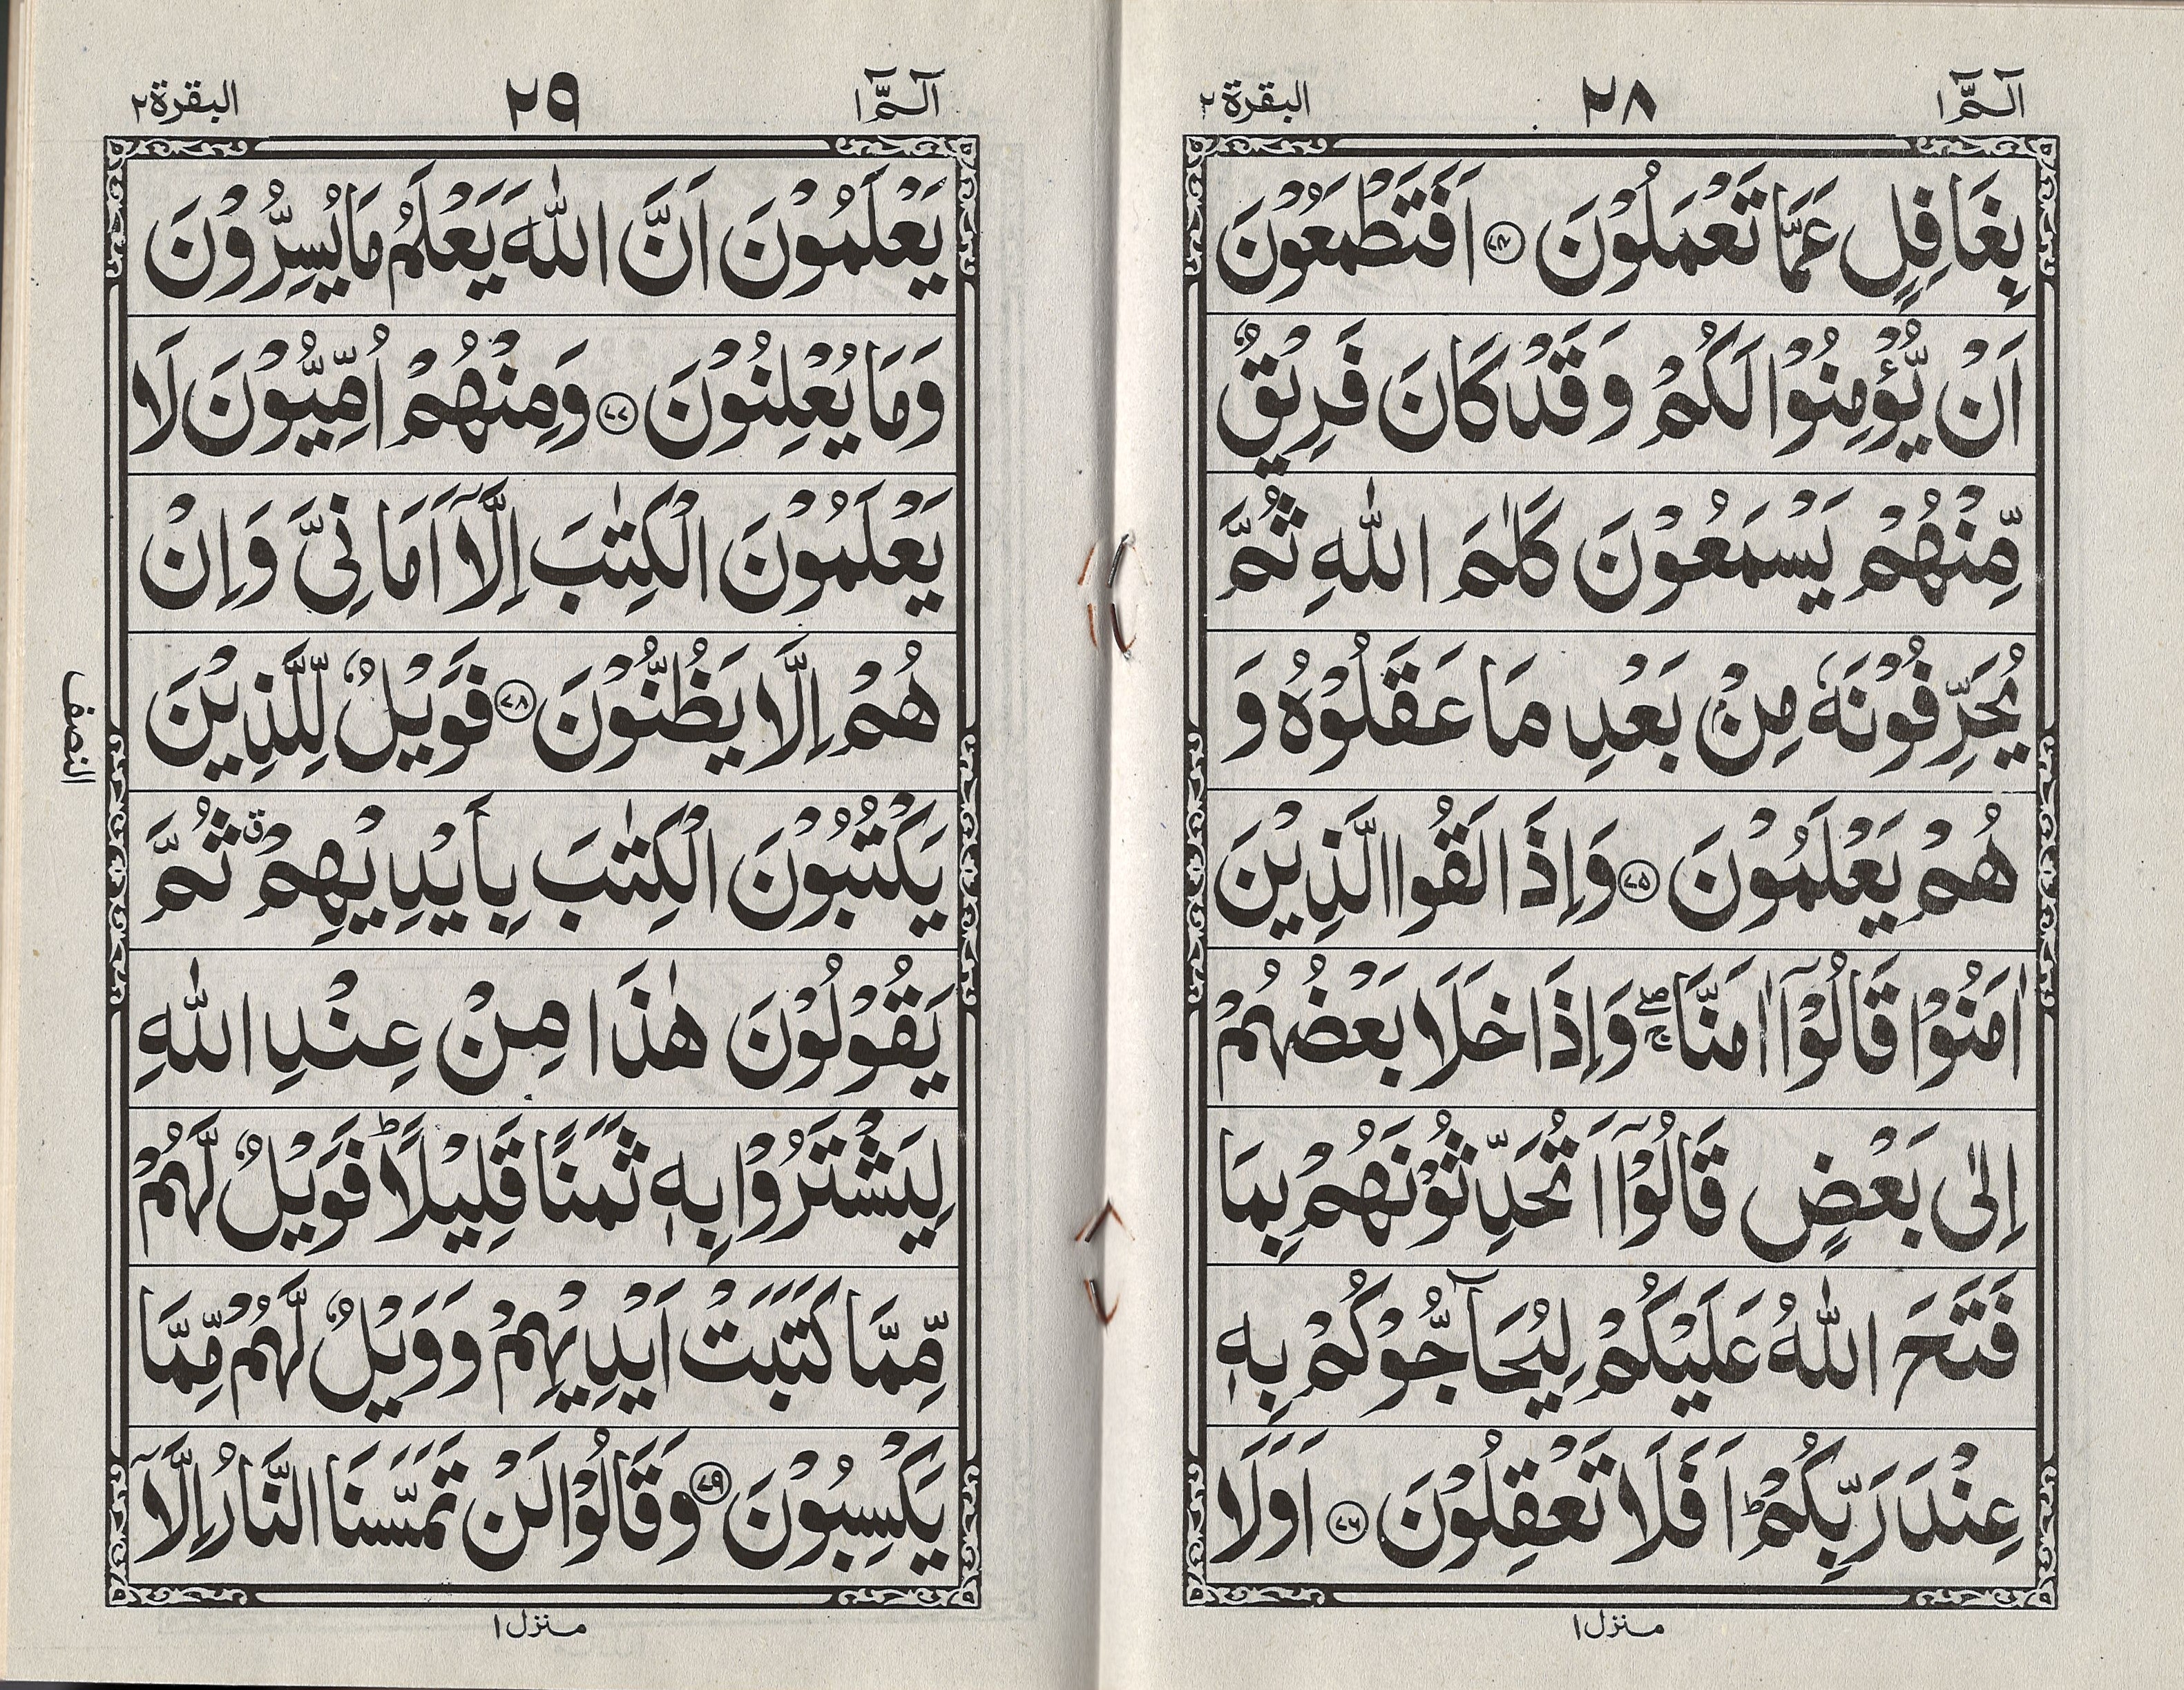 الٓمّٓ ١
٢٨
البقرة ٢
بِغَافِلٍ عَمَّا تَعْمَلُوْنَ ﴿٧٤﴾ اَفَتَطْمَعُوْنَ
اَنْ يُّؤْمِنُوْا لَكُمْ وَقَدْ كَانَ فَرِيْقٌ
مِّنْهُمْ يَسْمَعُوْنَ كَلٰمَ اللّٰهِ ثُمَّ
يُحَرِّفُوْنَهٗ مِنْۢ بَعْدِ مَا عَقَلُوْهُ وَ
هُمْ يَعْلَمُوْنَ ﴿٧٥﴾ وَاِذَا لَقُوا الَّذِيْنَ
اٰمَنُوْا قَالُوْٓا اٰمَنَّا ۚۖ وَاِذَا خَلَا بَعْضُهُمْ
اِلٰى بَعْضٍ قَالُوْٓا اَتُحَدِّثُوْنَهُمْ بِمَا
فَتَحَ اللّٰهُ عَلَيْكُمْ لِيُحَآجُّوْكُمْ بِهٖ
عِنْدَ رَبِّكُمْ ؕ اَفَلَا تَعْقِلُوْنَ ﴿٧٦﴾ اَوَلَا
منزل ١
الٓمّٓ ١
٢٩
البقرة ٢
يَعْلَمُوْنَ اَنَّ اللّٰهَ يَعْلَمُ مَا يُسِرُّوْنَ
وَمَا يُعْلِنُوْنَ ﴿٧٧﴾ وَمِنْهُمْ اُمِّيُّوْنَ لَا
يَعْلَمُوْنَ الْكِتٰبَ اِلَّآ اَمَانِيَّ وَاِنْ
هُمْ اِلَّا يَظُنُّوْنَ ﴿٧٨﴾ فَوَيْلٌ لِّلَّذِيْنَ
يَكْتُبُوْنَ الْكِتٰبَ بِاَيْدِيْهِمْ ۗ ثُمَّ
يَقُوْلُوْنَ هٰذَا مِنْ عِنْدِ اللّٰهِ
لِيَشْتَرُوْا بِهٖ ثَمَنًا قَلِيْلًا ؕ فَوَيْلٌ لَّهُمْ
مِّمَّا كَتَبَتْ اَيْدِيْهِمْ وَوَيْلٌ لَّهُمْ مِّمَّا
يَكْسِبُوْنَ ﴿٧٩﴾ وَقَالُوْا لَنْ تَمَسَّنَا النَّارُ اِلَّآ
النصف
منزل ١